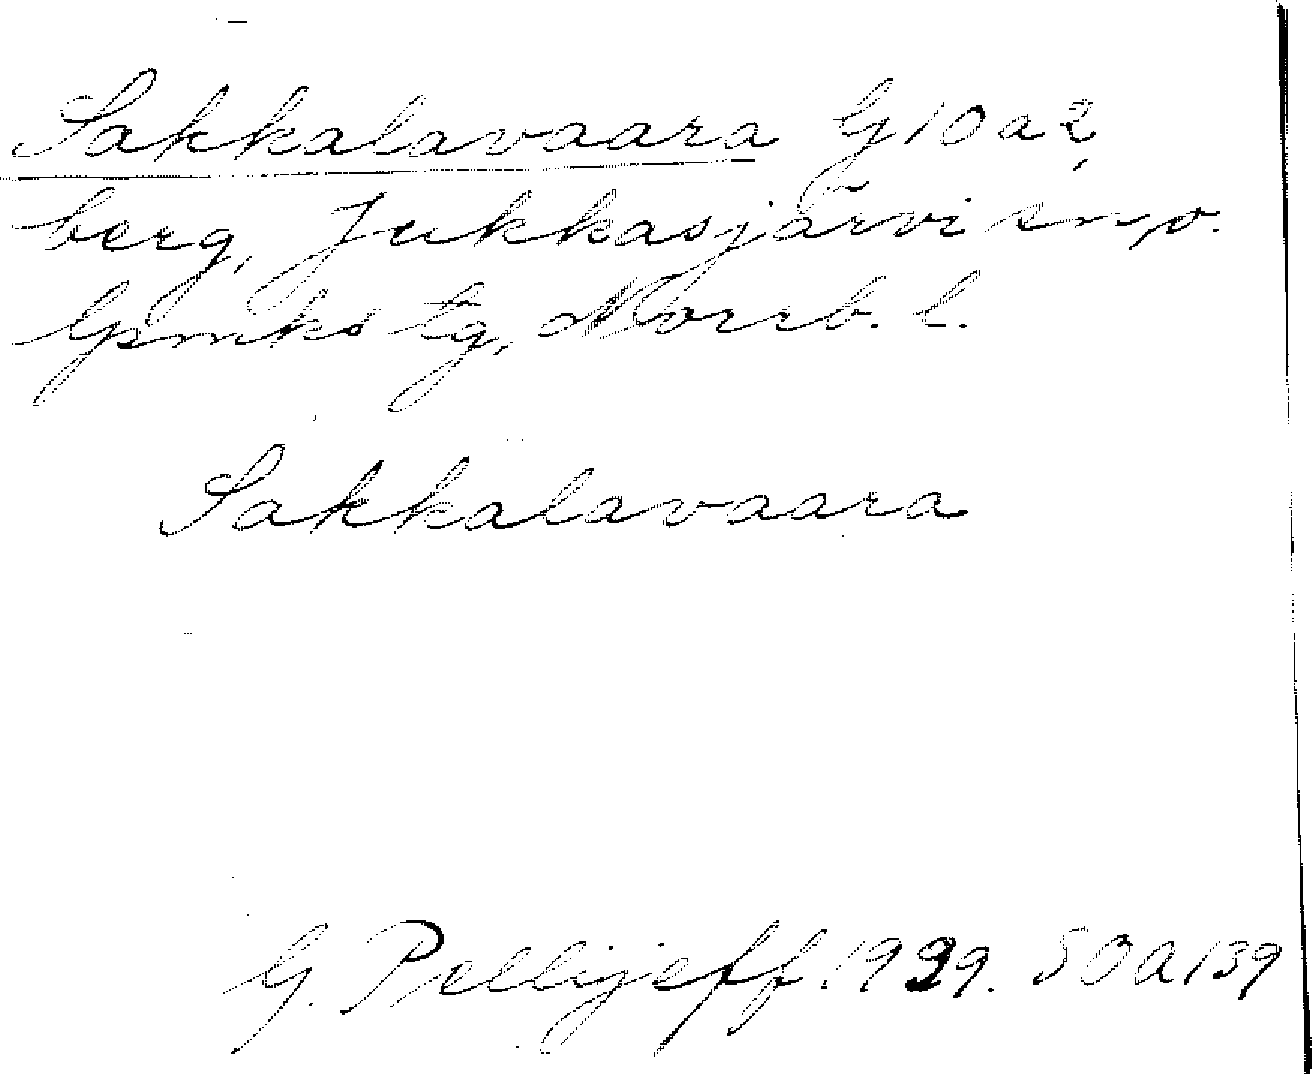 Sakkalavaara G 10 a 2,
berg, Jukkasjärvi snv.
Gpmks tg, Norrb. l.
Sakkalavaara
G. Pellijeff. 1939. SOA 139